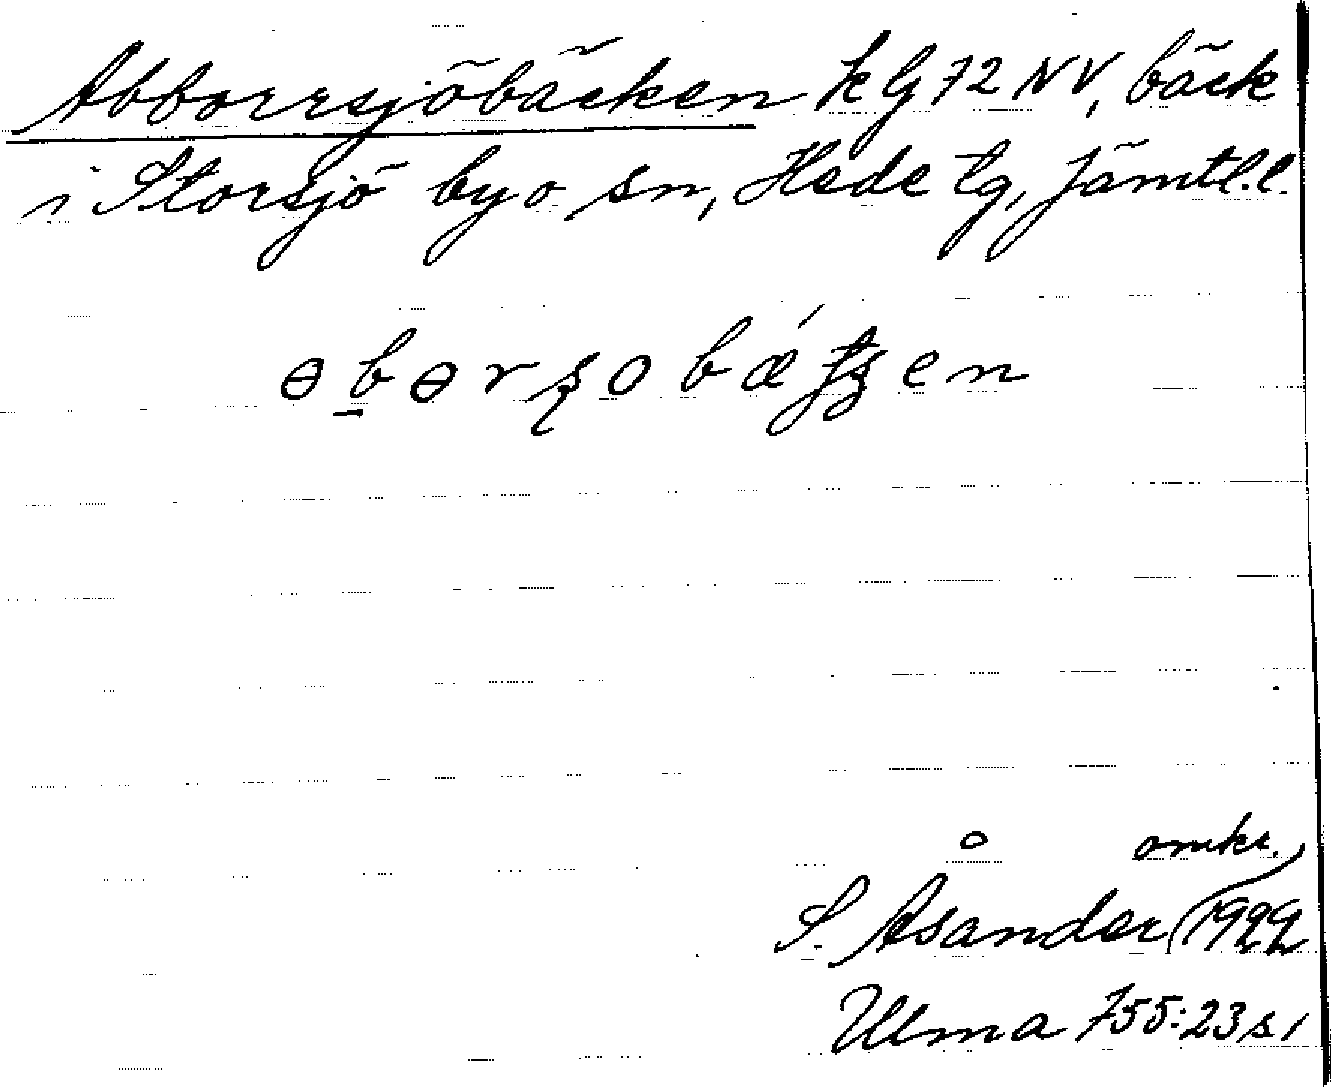 Abborrsjöbäcken kG 72 NV, bäck
i Storsjö by o. sn, Hede tg, Jämtl. l.
omkr.
S. Åsander (1922
Ulma 755:23 s 1